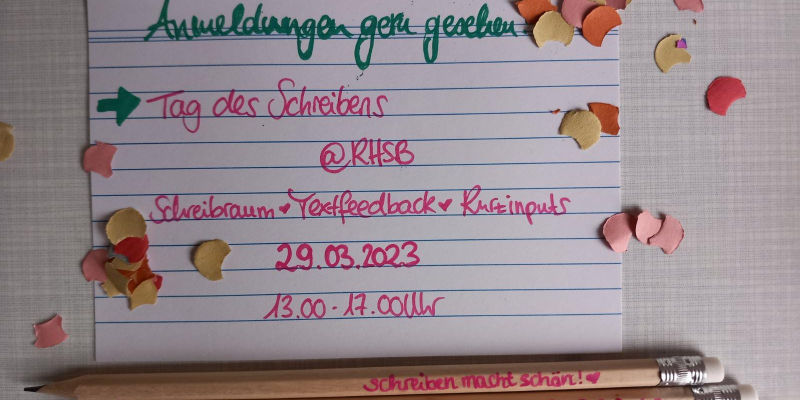 Anmeldungen gern gesehen
Tag des Schreibens
@RHSB
Schreibraum ♥ Textfeedback ♥ Kurzinputs
29.03.2023
13.00 - 17.00 Uhr
schreiben macht schön! ♥